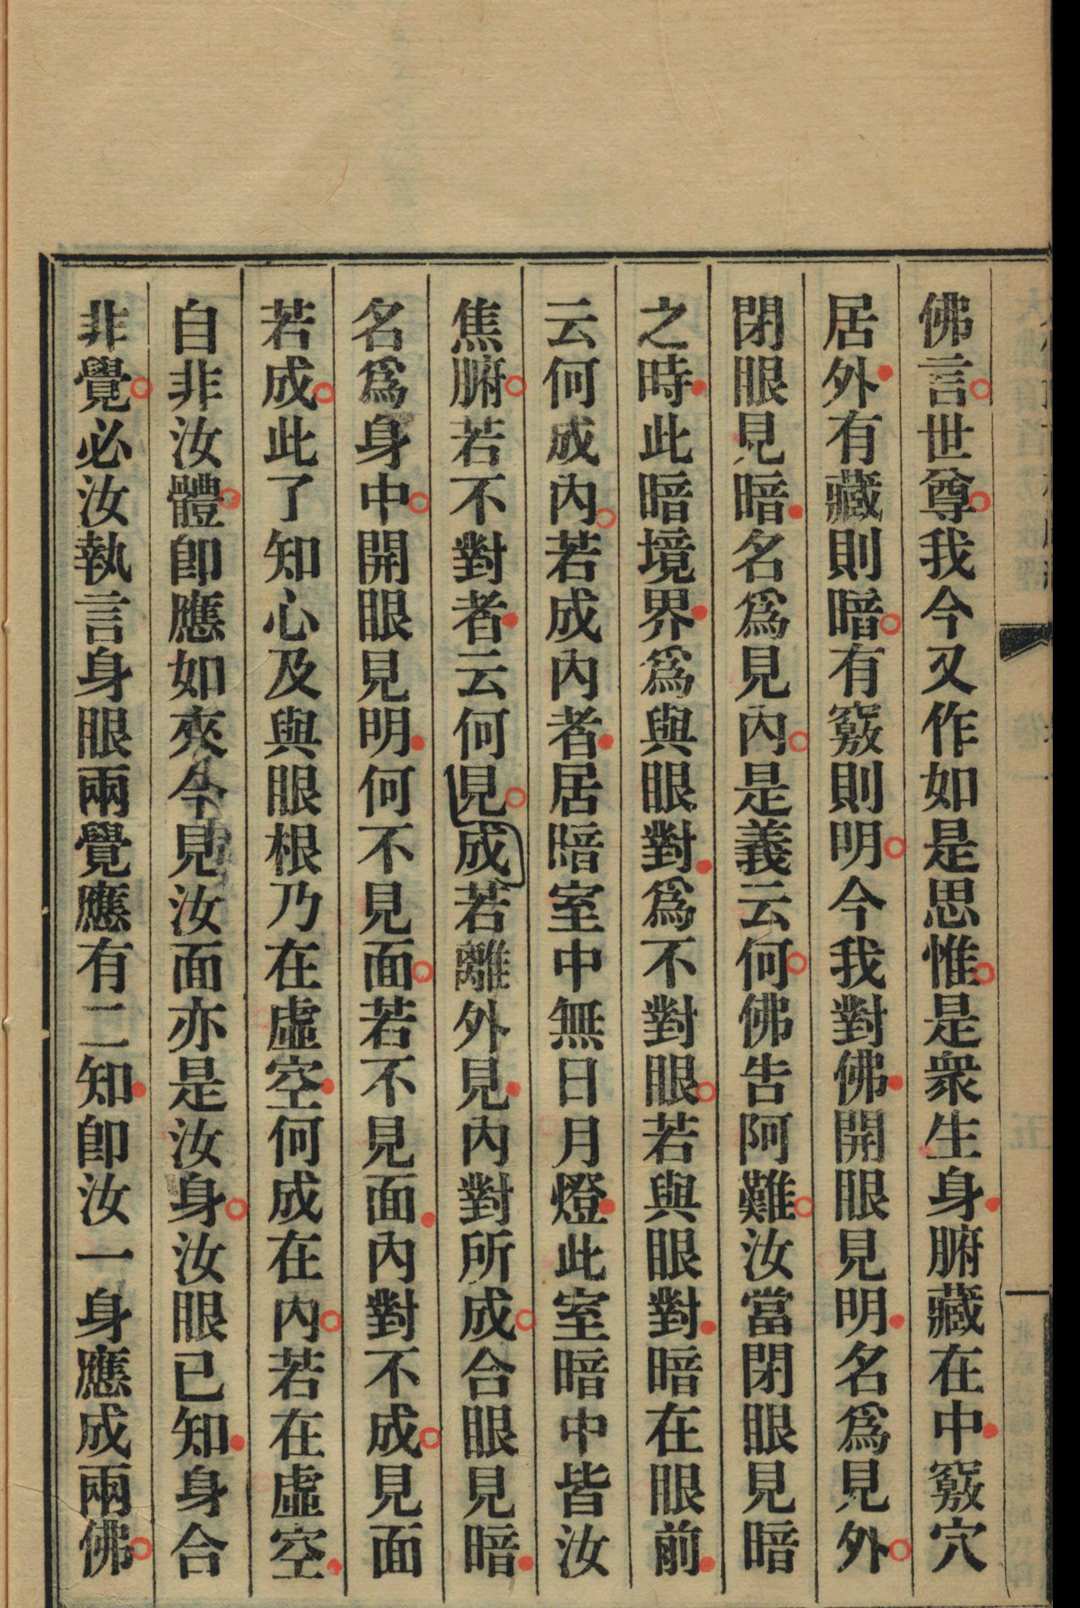 佛言世尊我今又作如是思惟是衆生身腑藏在中竅穴
居外有藏則暗有竅則明今我對佛開眼見明名爲見外
閉眼見暗名爲見內是義云何佛告阿難汝當閉眼見暗
之時此暗境界爲與眼對爲不對眼若與眼對暗在眼前
云何成內若成內者居暗室中無日月燈此室暗中皆汝
焦腑若不對者云何見成若離外見內對所成合眼見暗
名爲身中開眼見明何不見面若不見面內對不成見面
若成此了知心及與眼根乃在虛空何成在內若在虛空
自非汝體卽應如來今見汝面亦是汝身汝眼已知身合
非覺必汝執言身眼兩覺應有二知卽汝一身應成兩佛